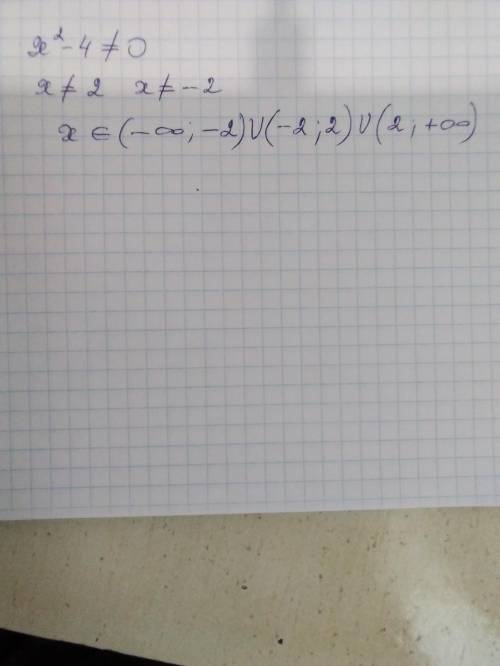 x² - 4 ≠ 0
x ≠ 2 x ≠ - 2
x ∈ (-∞; -2) ∪ (-2; 2) ∪ (2; +∞)